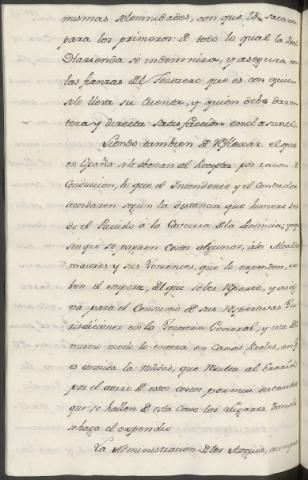 mismas solemnidades, con que se sacaron
para los primeros: de todo lo qual la Real
Hacienda se indemniza, y asegura con
las fianzas del Tesorero, que es con quien
se lleva su Cuenta, y quien debe dar en
tera y directa satisfaccion en el asunto.
Siendo tambien de notar el que
en España se le abonan al Receptor por razon de
Conduccion, lo que el Intendente y el Contador
acordaron segun la distancia que huviere des
de el Partido à la Cavecera de la Provincia; y aqui
sin que se causen costos algunos, à los Alcaldes
mayores y sus Tenientes, que lo expenden, en
ben el importe, de que se les reparte, y asig
na para el Consumo de sus respectivas Ju
risdicciones en la Tesoreria General, y este del
mismo modo lo entera en Caxas Reales, en q.e
es crecida la utilidad, que resulta al Erario
por el aorro de estos costos por mas distantes
que se hallen de esta Corte los Lugares, donde
se haga el expendio.
La Administracion de los Negocios, aunque